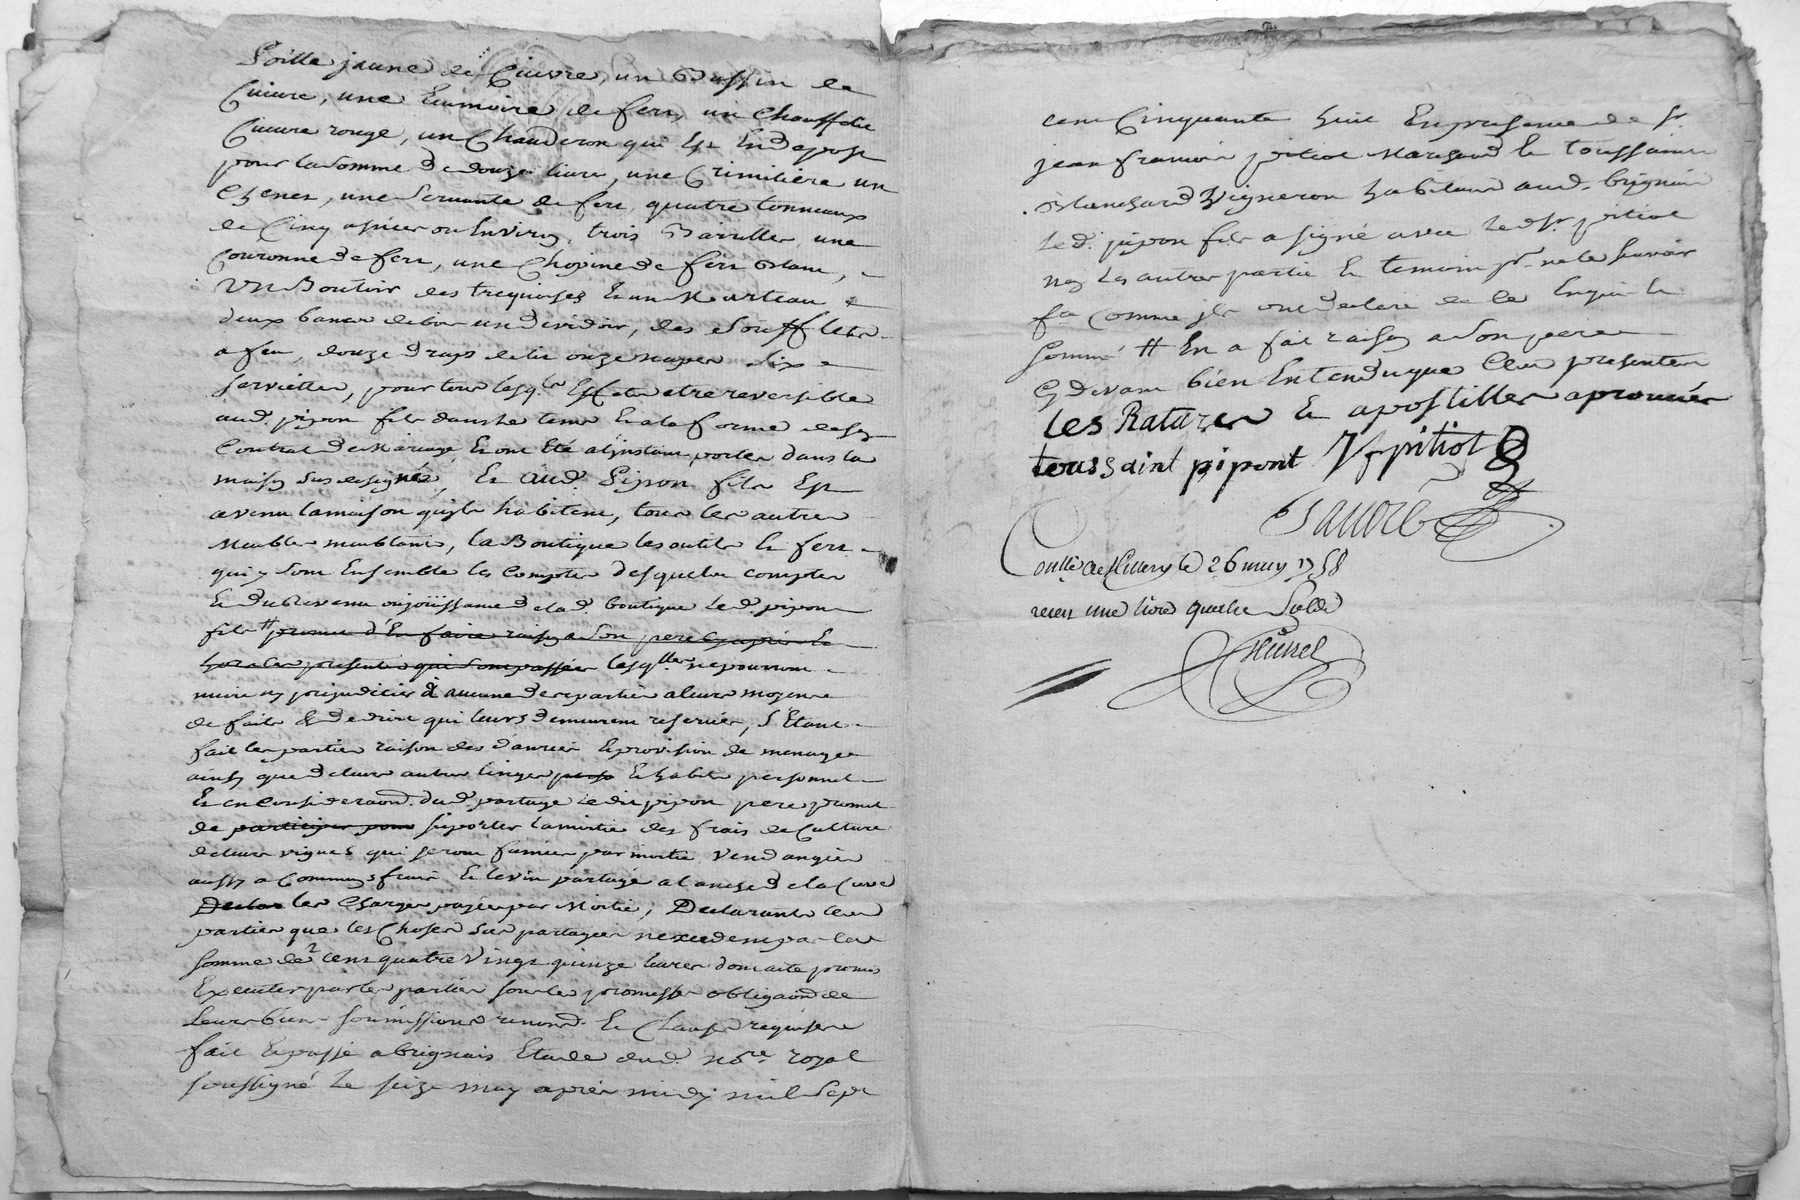 poille jaune de Cuivre, un Bassin de
Cuivre, une de fert, un Chauff
Cuivre rouge, un Chauderon qui Est
pour la somme de douze livre, une Crimiliere un
Chenet, une Servante de fert, quatre tonneaux
de Cinq asnées ou Environ, trois Barrilles, une
Couronne de fert, une Chopine de fert blanc,
Un Boutoir des trequoises Et un Marteau
deux bancs de bois un devidoir, des Soufflets
a feu, douze draps de lit onze napes Six
Serviettes, pour tous lesq.ls Effets etre reversible
aud. pipon fils dans le tems Et a la forme de son
Contrat de Mariage, Et ont Eté a l'instant portés dans la
maison sus designée, Et aud. Pipon fils Est
avenu la maison qu'ils habitent, tous les autres
Meubles meublants, la Boutique les outils Et fert
qui y sont Ensemble les Comptes desquels comptes
Et du Revenu ou joüissance de lad. boutique led. pipon
fils # promet d'En faire raison a Son pere
presentes qui Sont passées lesq.lles ne pourront
nuire ny prejudicier à aucune des parties a leurs moyens
de faits & de droit qui leurs demeurent reservés, s'Etant
fait les parties raison des danrées Et provision de menage
ainsy que de leurs autres linges Et habits personnel
Et en Consideraon. dud. partage ledit pipon pere promet
de participer pour suporter la moitié des frais de Culture
de leurs vignes qui seront fumées par moitié Vendangées
aussy a Communs frais Et le vin partagé a l'anche de la Cuve
Declar les Charges payées par Moitié; Declarants lesd.
parties que les Choses Sus partagées n'excedent pas la
somme de 2 cent quatre Vingt quinze livres dont acte promis
Executer par les parties sous les promesses obligaons de
leurs biens soumissions renond. Et Clauses requises
fait Et passé a brignais Etude dud. no.re royal
soussigné le seize may après midy mil Sept
cent Cinquante huit En presence de Sr.
jean francois pitiot Marchand Et toussaint
Blanchard Vigneron habitants aud. brignais
led. pipon fils a signé avec led. Sr. pitiot
non les autres partie Et temoin pr. ne le savoir
fe. Comme ils ont declaré de ce Enquis Et
Sommé # En a fait raison a Son pere
Cy devant bien Entendu que Ces presentes
les Ratures Et apostilles aprouvées
toussaint pipont J f pitiot

Con.llé a st Genis le 26 may 1758
receu une livre quatre Solds